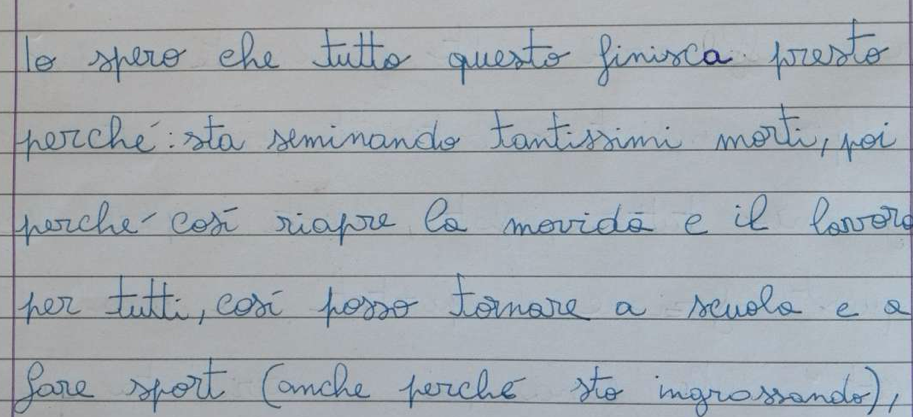 Io spero che tutto questo finisca presto
perché: sta seminando tantissimi morti, poi
perché così riapre la movida e il lavoro
per tutti, così posso tornare a scuola e a
fare sport (anche perché sto ingrossando),